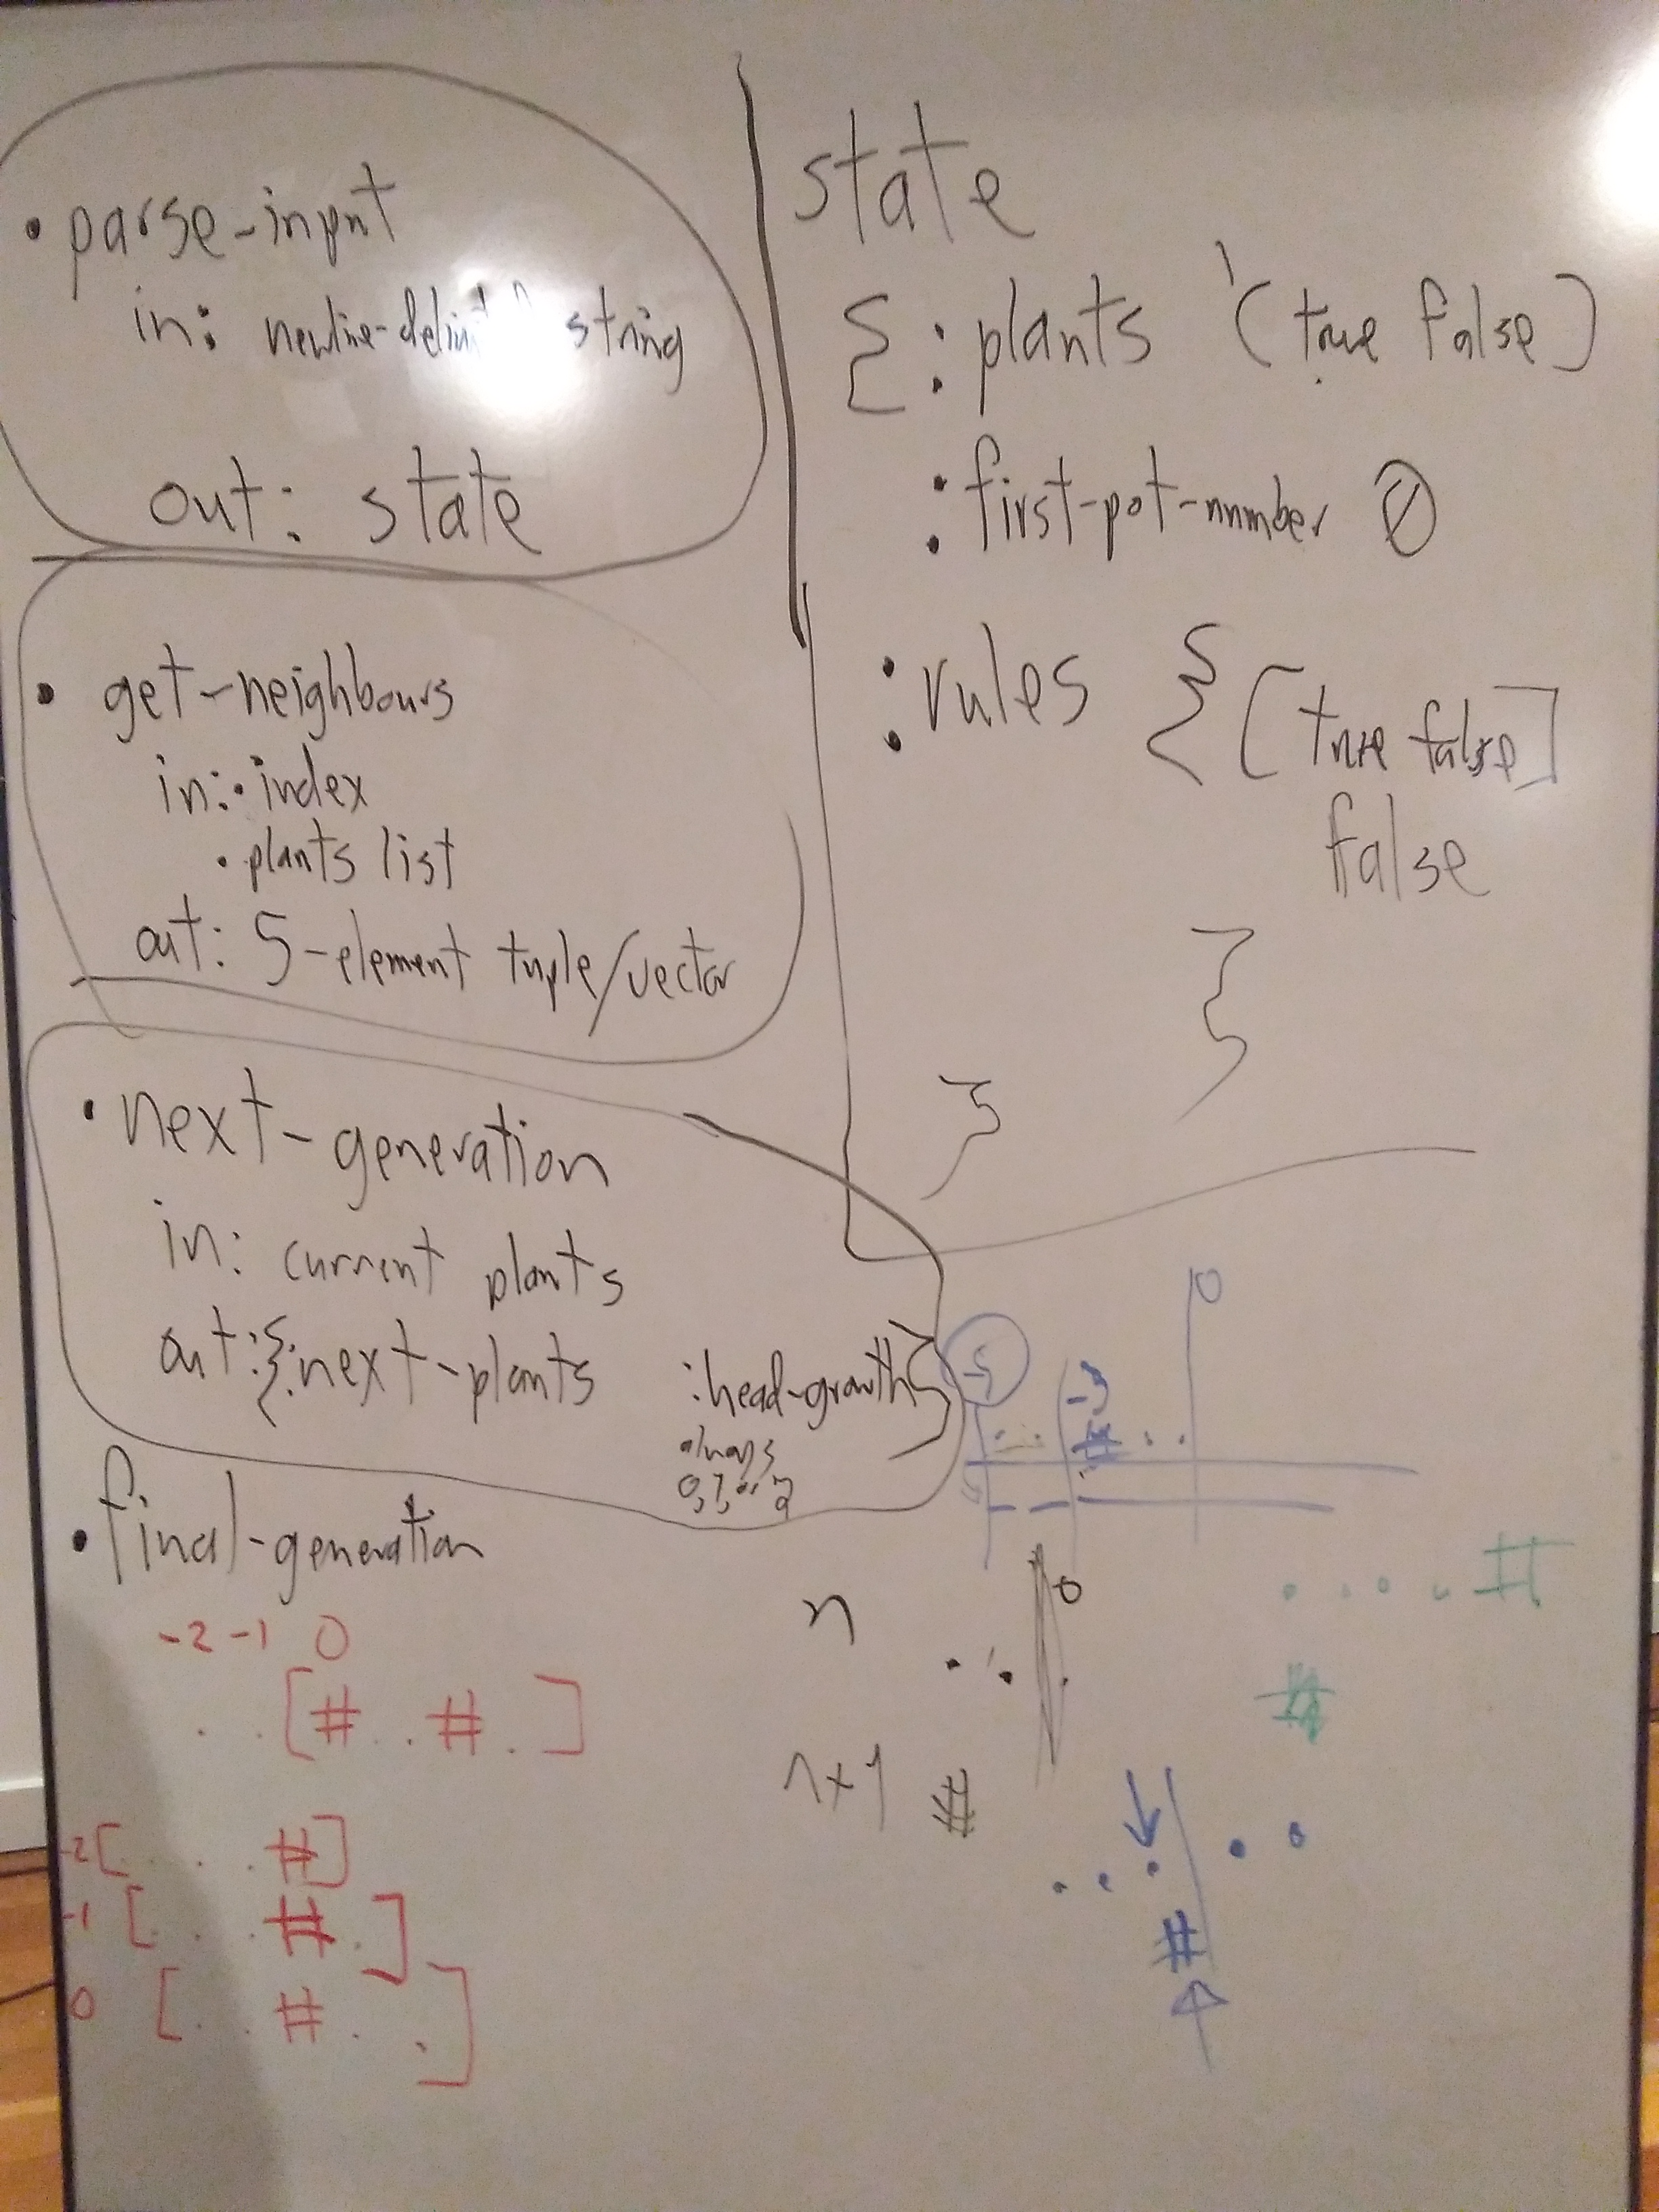 • parse-input
in: string
out: state
• get-neighbours
in: • index
• plants list
out: 5-element tuple/vector
• next-generation
in: current plants
out: {:next-plants :head-growth}
always
0, 1, or 2
• final-generation
-2 -1 0
. . [# . . # . ]
-2 [. . . #]
-1 [. . . # .]
0 [. . # . .]
state
{:plants '(true false)
:first-pot-number 0
:rules {[true false]
false
}
}
0
-5 -3
. . # . .
n 0
. . .
n+1 #
. . . . #
#
. . . . .
#